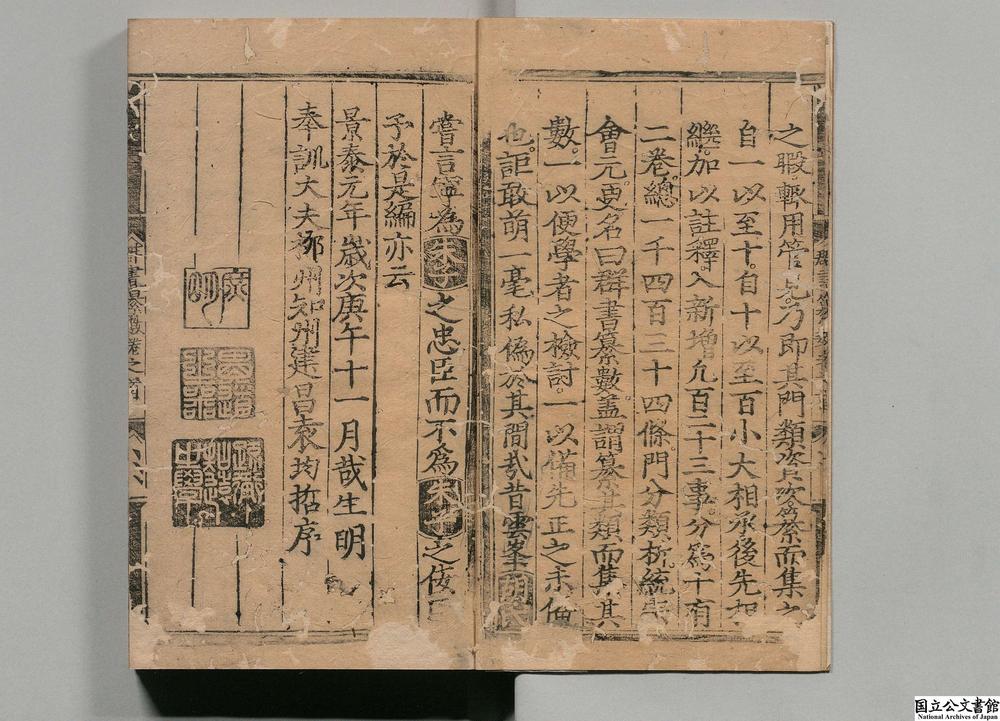 之暇輙用管見乃即其門類資次纂而集之
自一以至十自十以至百小大相承後先相
繼加以註釋入新增凢百二十三事分爲十有
二卷總一千四百三十四條門分類析統宗
會元更名曰群書纂數蓋謂纂其類而集其
數一以便學者之檢討一以備先正之未俻
也詎敢萌一毫私僞於其間哉昔雲峯胡氏
嘗言寧爲朱子之忠臣而不爲朱子之佞臣
予於是編亦云
景泰元年歲次庚午十一月哉生明
奉訓大夫 州知州建昌袁均哲序
國立公文書館
National Archives of Japan